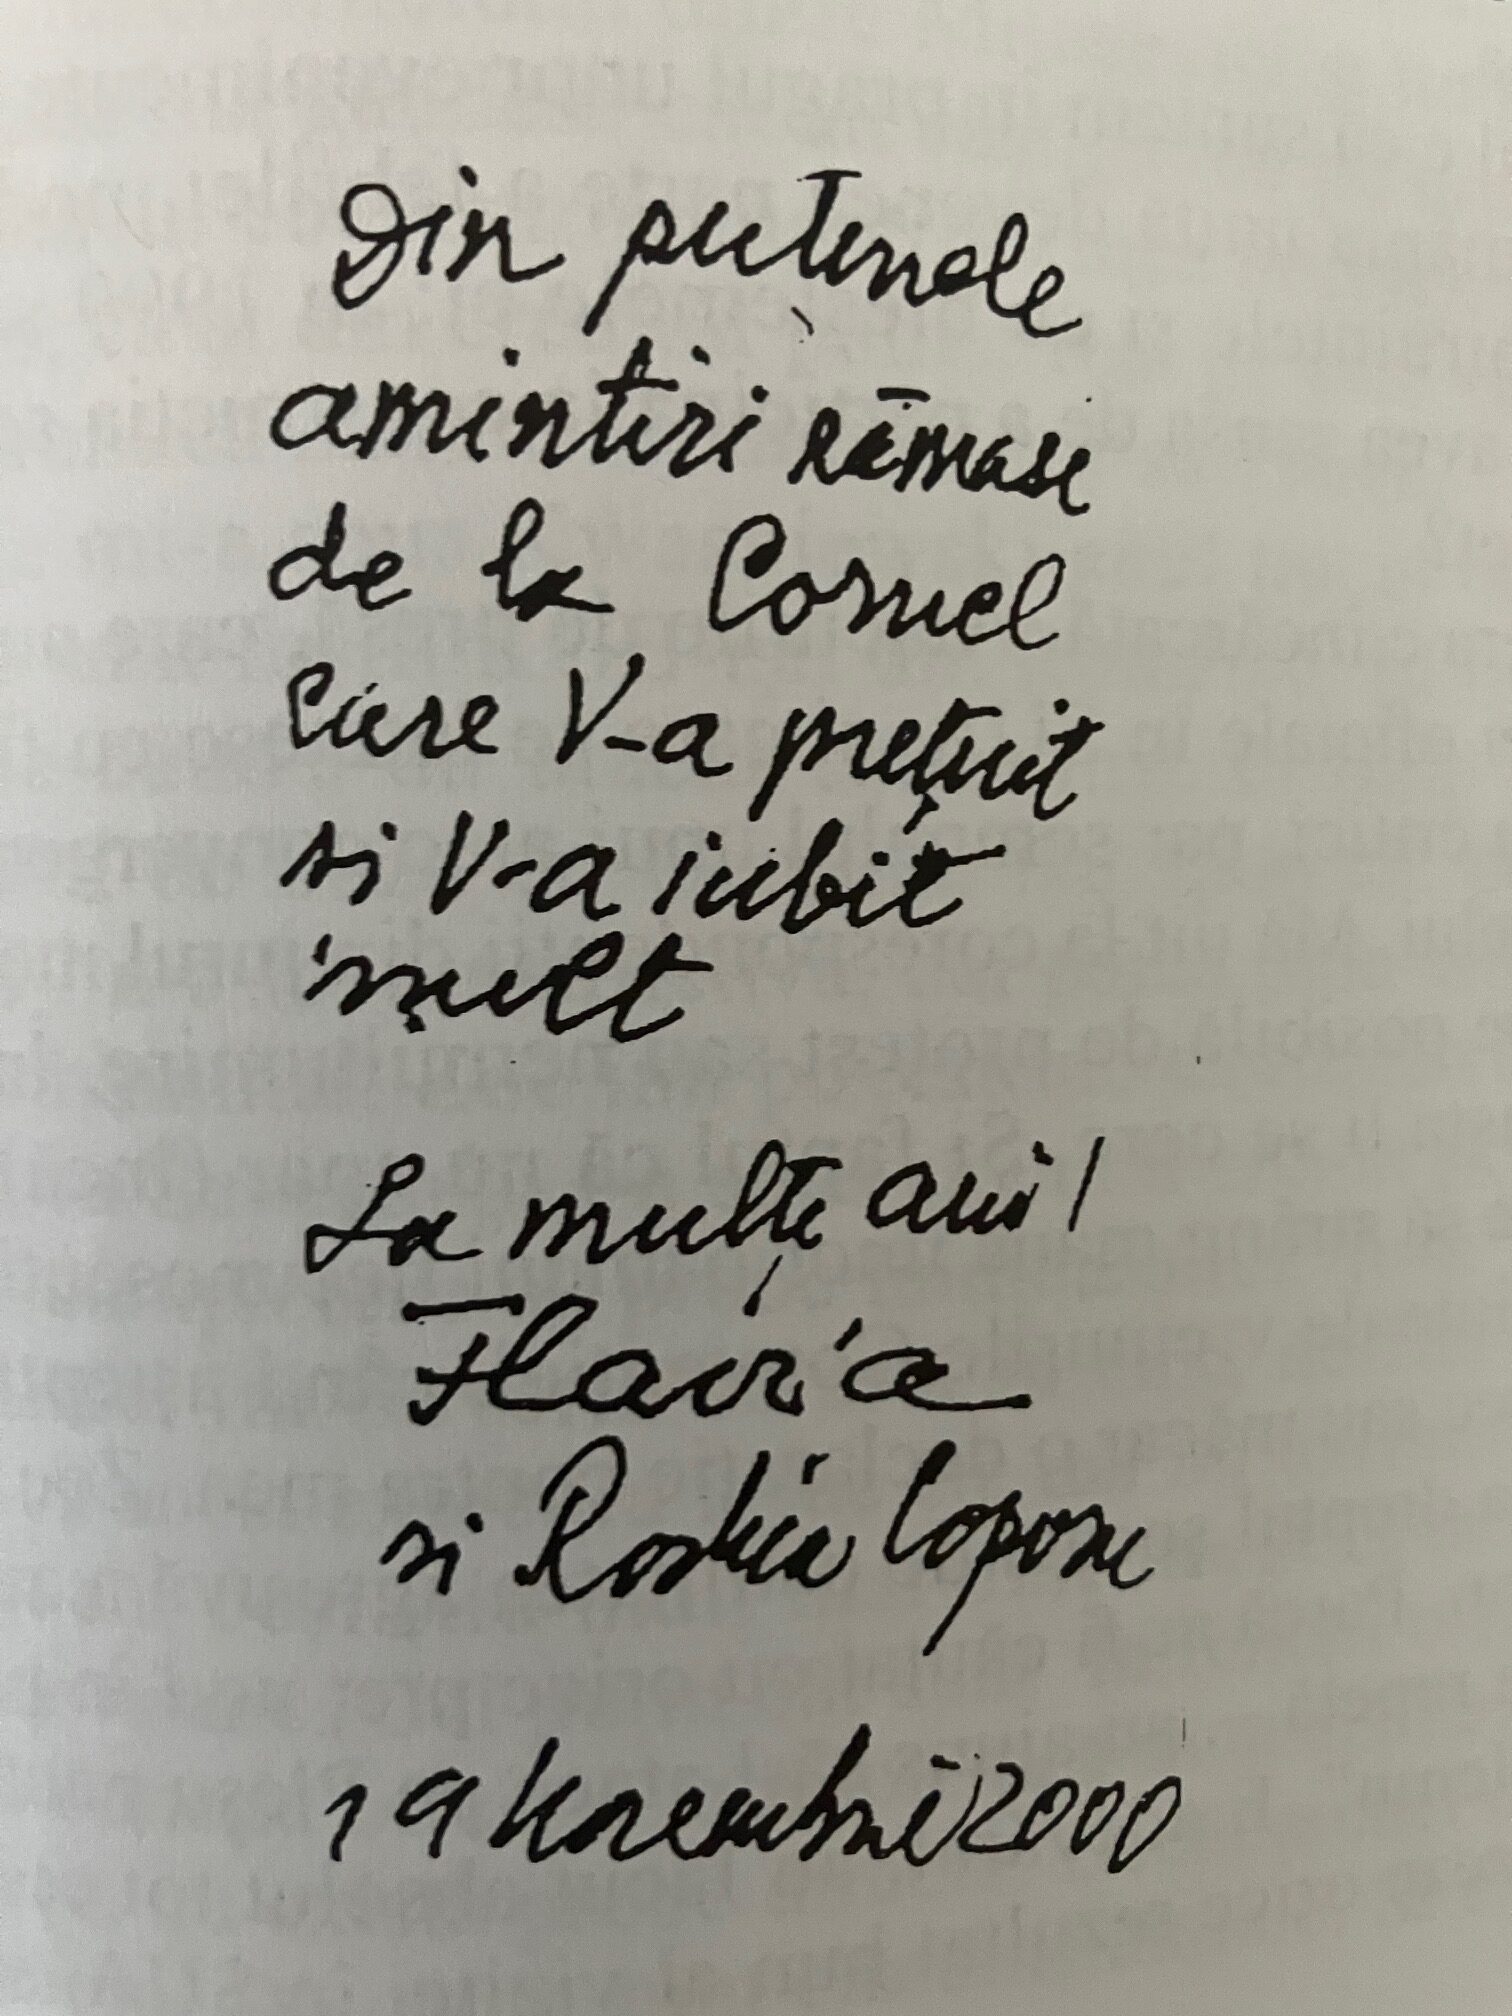 Din puținele
amintiri rămase
de la Cornel
care V-a prețuit
si V-a iubit
mult
La mulți ani!
Flavia
si Rodica Coposu
19 Noembrie 2000